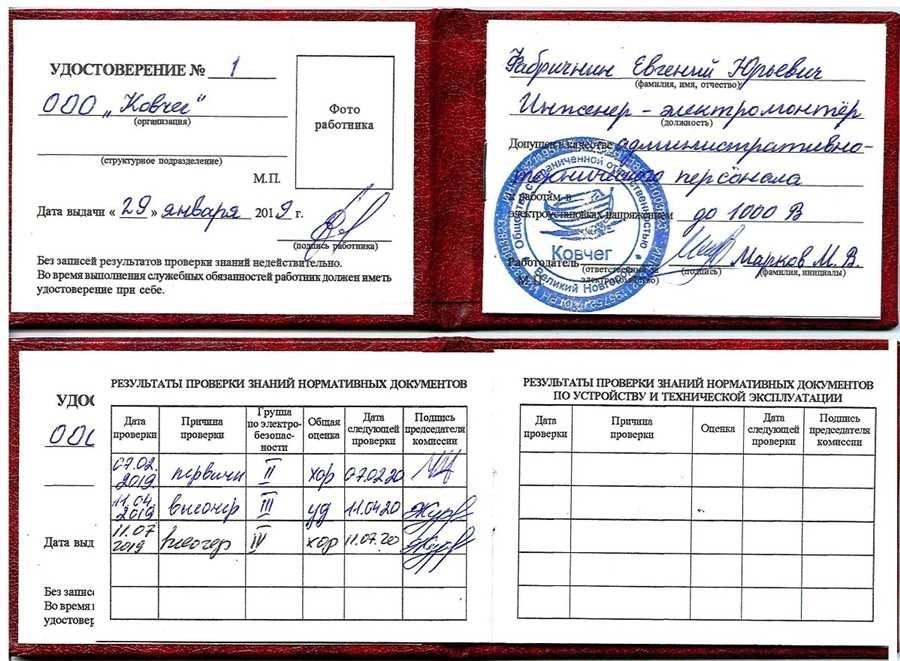 УДОСТОВЕРЕНИЕ № 1
ООО „Ковчег“
(организация)
(структурное подразделение)
Фото
работника
М.П.
Дата выдачи « 29 » января 2019 г.
(подпись работника)
Без записей результатов проверки знаний недействительно.
Во время выполнения служебных обязанностей работник должен иметь
удостоверение при себе.
Фабричнин Евгений Юрьевич
(фамилия, имя, отчество)
Инженер - электромонтёр
(должность)
Допущен в качестве административно-
технического персонала
к работам в
электроустановках напряжением до 1000 В
Работодатель Марков М.В.
(ответственный (подпись) (фамилия, инициалы)
М.П. за электрохозяйство)
Общество с ограниченной ответственностью
Ковчег
Великий Новгород
РЕЗУЛЬТАТЫ ПРОВЕРКИ ЗНАНИЙ НОРМАТИВНЫХ ДОКУМЕНТОВ
Дата проверки Причина проверки Группа по электро-безопас-ности Общая оценка Дата следующей проверки Подпись председателя комиссии
07.02.2019 первичн II хор 07.0220
11.04.2019 внеочер III уд 11.0420
11.07 2019 внеочер IV хор 11.07.20
УДОС
ООО
Дата выд
Без записе
Во время в
удостовер
РЕЗУЛЬТАТЫ ПРОВЕРКИ ЗНАНИЙ НОРМАТИВНЫХ ДОКУМЕНТОВ
ПО УСТРОЙСТВУ И ТЕХНИЧЕСКОЙ ЭКСПЛУАТАЦИИ
Дата проверки Причина проверки Оценка Дата следующей проверки Подпись председателя комиссии